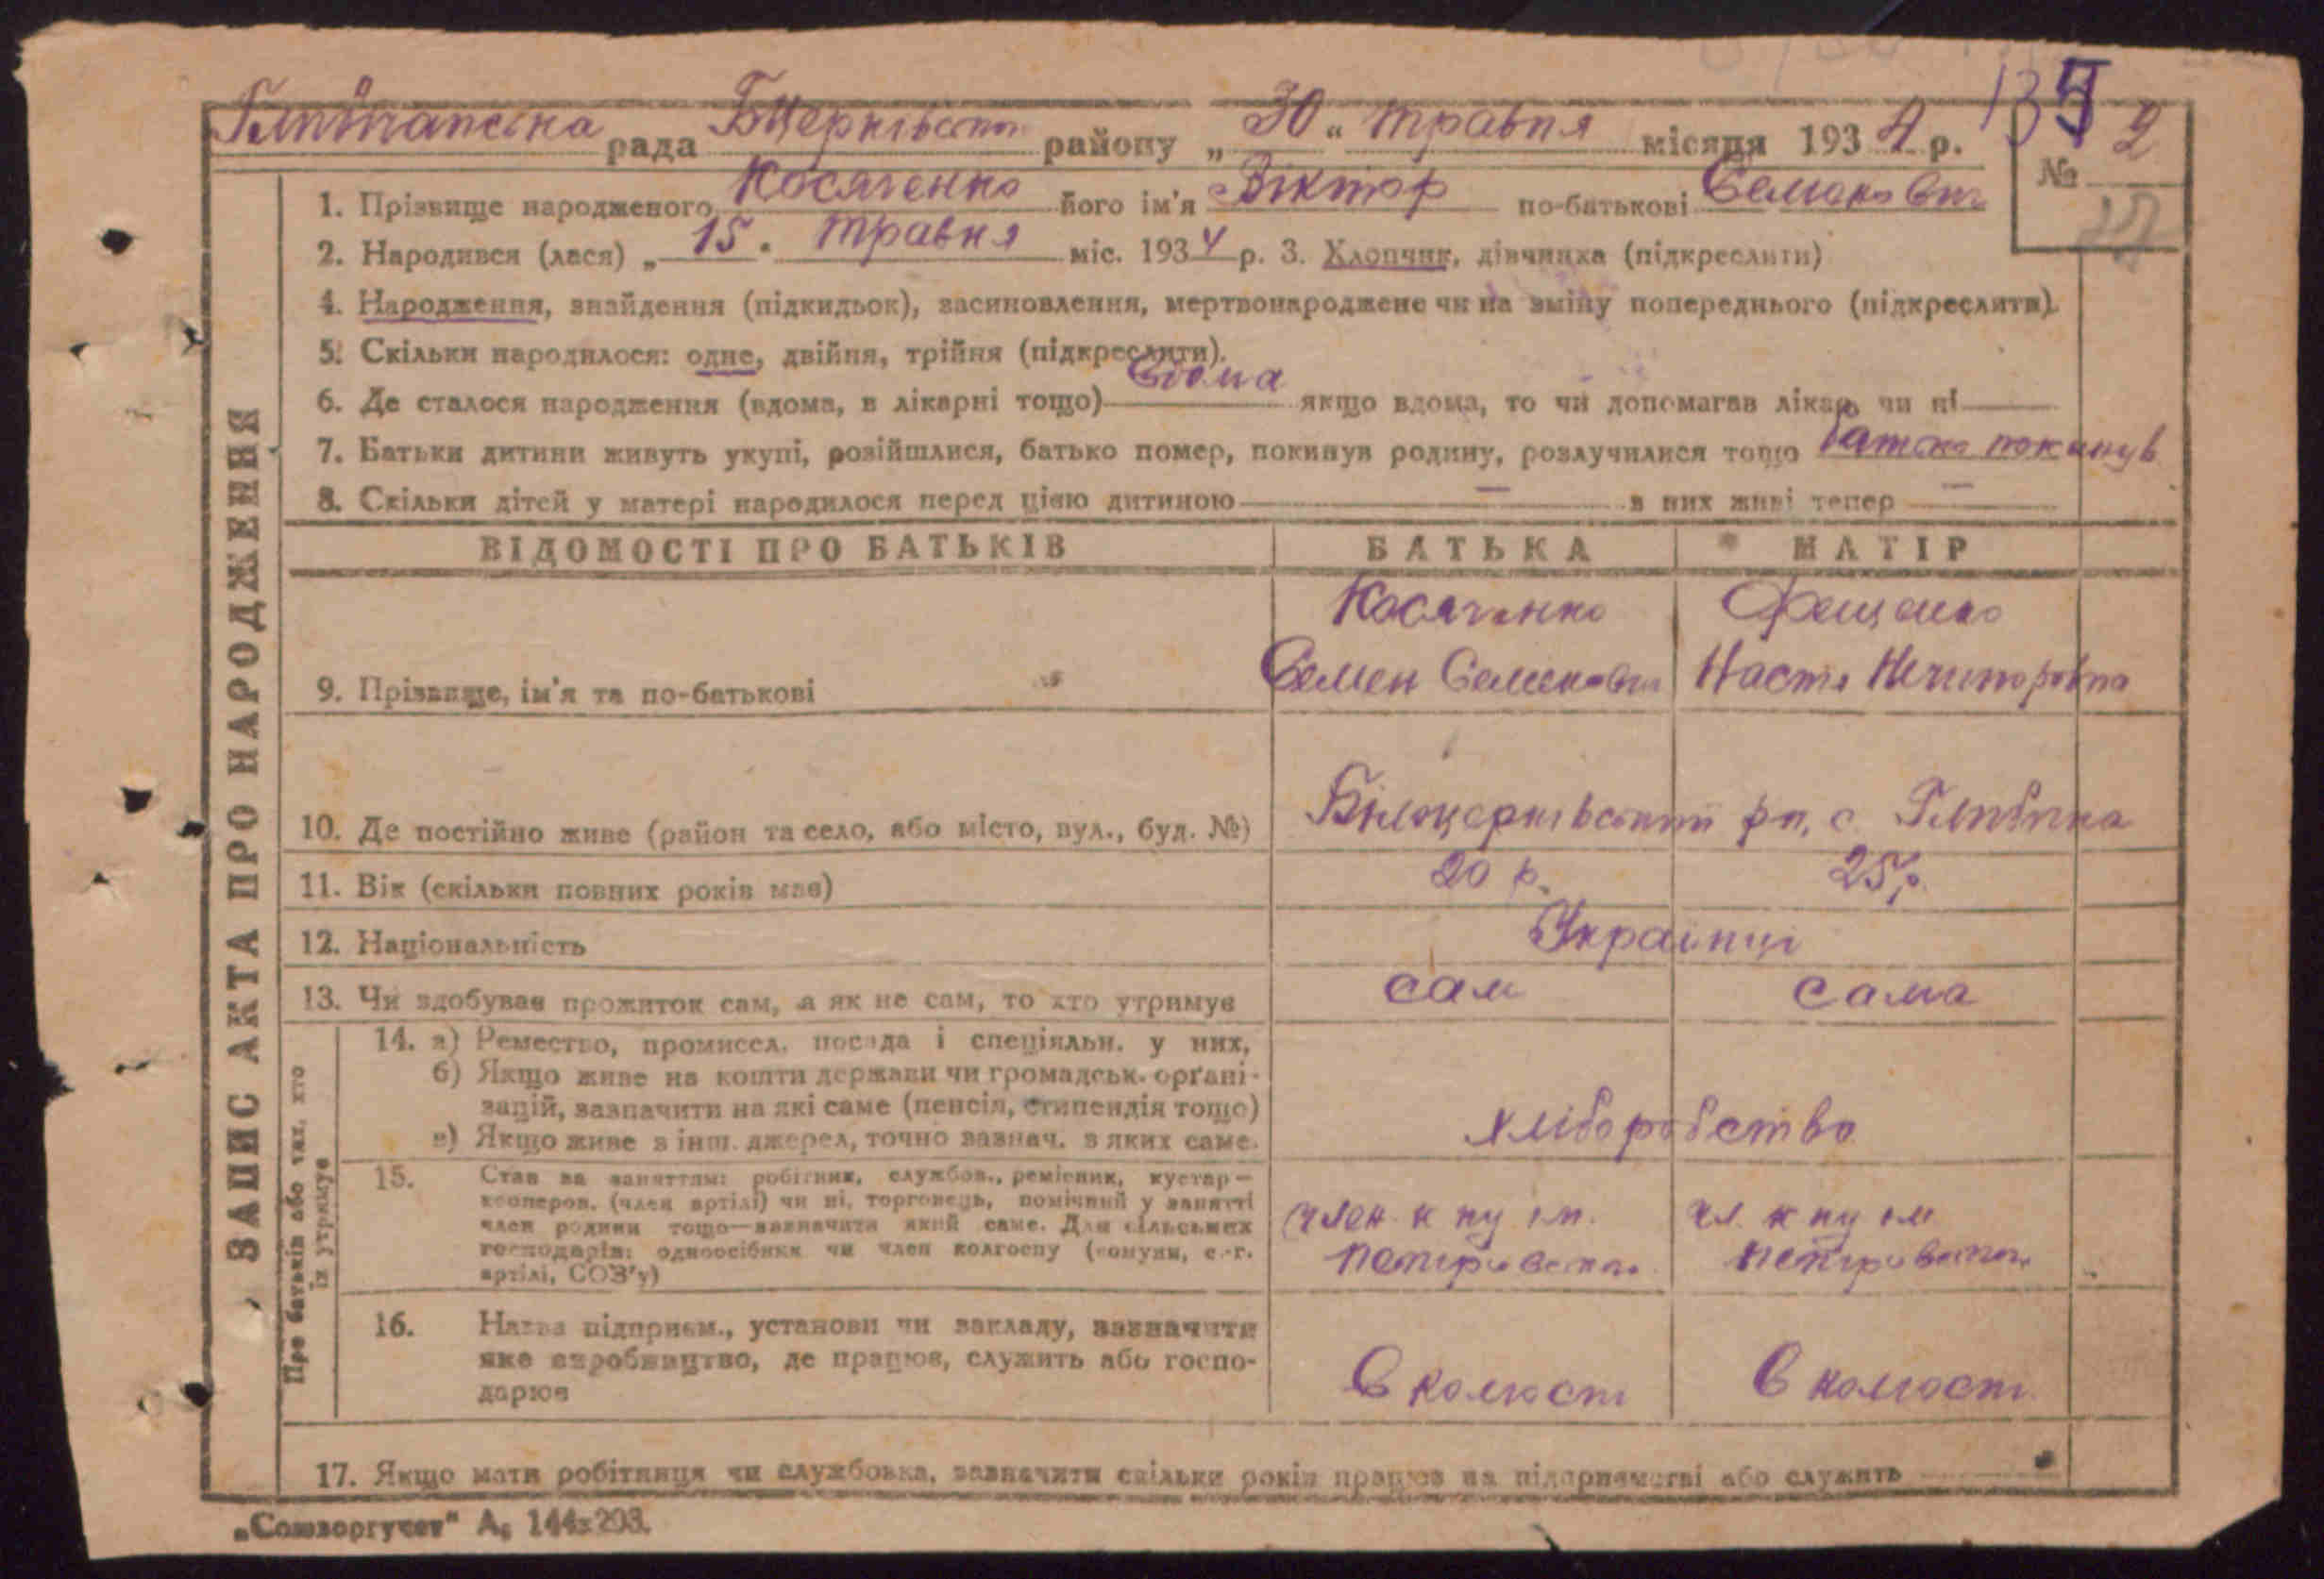 рада Бцерківськ району „30“ травня місяця 1934 р. 135 2
№ 27
1. Прізвище народженого Косяченко його ім'я Віктор по-батькові Семенович
2. Народився (лася) „15“ травня міс. 1934 р. 3. Хлопчик, дівчинка (підкреслити)
4. Народження, знайдення (підкидьок), засиновлення, мертвонароджене чи на зміну попереднього (підкреслити).
5. Скільки народилося: одне, двійня, трійня (підкреслити).
6. Де сталося народження (вдома, в лікарні тощо) вдома якщо вдома, то чи допомагав лікарь чи ні
7. Батьки дитини живуть укупі, розійшлися, батько помер, покинув родину, розлучилися тощо батько покинув
8. Скільки дітей у матері народилося перед цією дитиною — в них живі тепер —
ЗАПИС АКТА ПРО НАРОДЖЕННЯ
ВІДОМОСТІ ПРО БАТЬКІВ БАТЬКА МАТІР
Косяченко Фещенко
9. Прізвище, ім'я та по-батькові Семен Семенович Настя Ничипоровна
10. Де постійно живе (район та село, або місто, вул., буд. №) Білоцерківський рн, с
11. Вік (скільки повних років має) 20 р. 25 р.
12. Національність Українці
13. Чи здобуває прожиток сам, а як не сам, то хто утримує сам сама
Про батьків або тих, хто
їх утримує
14. а) Ремество, промисел, посада і спеціяльн. у них,
б) Якщо живе на кошти держави чи громадськ. орґані-
зацій, зазначити на які саме (пенсія, стипендія тощо)
в) Якщо живе з інш. джерел, точно зазнач. з яких саме. хліборобство
15. Стан за заняттям: робітник, службов., ремісник, кустар—
кооперов. (член артілі) чи ні, торговець, помічний у занятті
член родини тощо—зазначити який саме. Для сільських член
господарів: одноосібник чи член колгоспу (комуни, с.-г.
артілі, СОЗ'у)
16. Назва підприєм., установи чи закладу, зазначити
яке виробництво, де працює, служить або госпо-
дарює В колгосп В колгосп
17. Якщо мати робітниця чи службовка, зазначити скільки років працює на підприємстві або служить
„Союзоргучет“ А₅ 144×203.